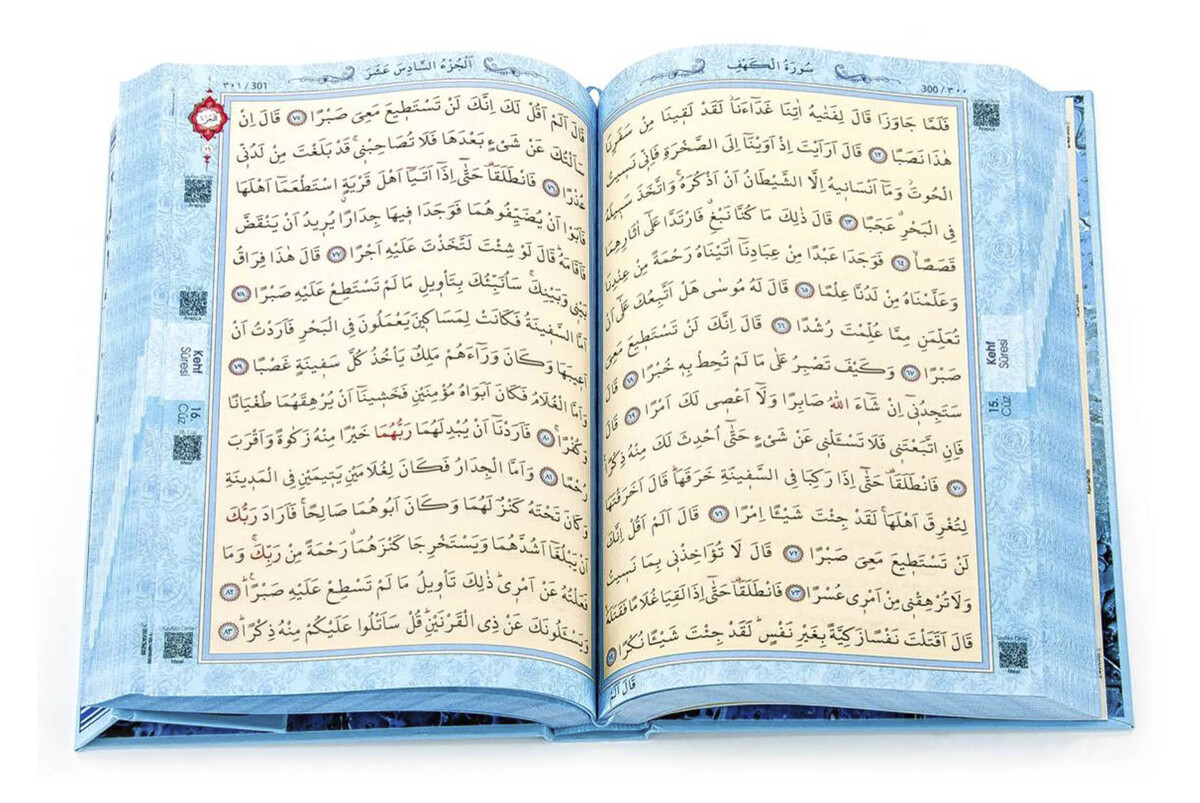 سُورَةُ الْكَهْفِ
300 / ٣٠٠
فَلَمَّا جَاوَزَا قَالَ لِفَتٰيهُ اٰتِنَا غَدَٓاءَنَاۘ لَقَدْ لَق۪ينَا مِنْ سَفَرِنَا
هٰذَا نَصَبًا ٦٢ قَالَ اَرَاَيْتَ اِذْ اَوَيْنَٓا اِلَى الصَّخْرَةِ فَاِنّ۪ي نَس۪يتُ
الْحُوتَۘ وَمَٓا اَنْسَان۪يهُ اِلَّا الشَّيْطَانُ اَنْ اَذْكُرَهُۚ وَاتَّخَذَ سَب۪يلَهُ
فِي الْبَحْرِۗ عَجَبًا ٦٣ قَالَ ذٰلِكَ مَا كُنَّا نَبْغِۗ فَارْتَدَّا عَلٰٓى اٰثَارِهِمَا
قَصَصًاۙ ٦٤ فَوَجَدَا عَبْدًا مِنْ عِبَادِنَٓا اٰتَيْنَاهُ رَحْمَةً مِنْ عِنْدِنَا
وَعَلَّمْنَاهُ مِنْ لَدُنَّا عِلْمًا ٦٥ قَالَ لَهُ مُوسٰى هَلْ اَتَّبِعُكَ عَلٰٓى اَنْ
تُعَلِّمَنِ مِمَّا عُلِّمْتَ رُشْدًا ٦٦ قَالَ اِنَّكَ لَنْ تَسْتَط۪يعَ مَعِيَ
صَبْرًا ٦٧ وَكَيْفَ تَصْبِرُ عَلٰى مَا لَمْ تُحِطْ بِه۪ خُبْرًا ٦٨ قَالَ
سَتَجِدُن۪ٓي اِنْ شَٓاءَ اللّٰهُ صَابِرًا وَلَٓا اَعْص۪ي لَكَ اَمْرًا ٦٩ قَالَ
فَاِنِ اتَّبَعْتَن۪ي فَلَا تَسْـَٔلْن۪ي عَنْ شَيْءٍ حَتّٰٓى اُحْدِثَ لَكَ مِنْهُ ذِكْرًا
٧٠ فَانْطَلَقَا۠ حَتّٰٓى اِذَا رَكِبَا فِي السَّف۪ينَةِ خَرَقَهَاۜ قَالَ اَخَرَقْتَهَا
لِتُغْرِقَ اَهْلَهَاۚ لَقَدْ جِئْتَ شَيْـًٔا اِمْرًا ٧١ قَالَ اَلَمْ اَقُلْ اِنَّكَ
لَنْ تَسْتَط۪يعَ مَعِيَ صَبْرًا ٧٢ قَالَ لَا تُؤَاخِذْن۪ي بِمَا نَس۪يتُ
وَلَا تُرْهِقْن۪ي مِنْ اَمْر۪ي عُسْرًا ٧٣ فَانْطَلَقَا۠ حَتّٰٓى اِذَا لَقِيَا غُلَامًا فَقَتَلَهُۙ
قَالَ اَقَتَلْتَ نَفْسًا زَكِيَّةً بِغَيْرِ نَفْسٍۜ لَقَدْ جِئْتَ شَيْـًٔا نُكْرًا ٧٤
قَالَ اَلَمْ
Kehf
Sûresi
15.
Cüz
اَلْجُزْءُ السَّادِسَ عَشَرَ
٣٠١ / 301
قَالَ اَلَمْ اَقُلْ لَكَ اِنَّكَ لَنْ تَسْتَط۪يعَ مَعِيَ صَبْرًا ٧٥ قَالَ اِنْ
سَاَلْتُكَ عَنْ شَيْءٍ بَعْدَهَا فَلَا تُصَاحِبْن۪يۚ قَدْ بَلَغْتَ مِنْ لَدُنّ۪ي
عُذْرًا ٧٦ فَانْطَلَقَا۠ حَتّٰٓى اِذَٓا اَتَيَٓا اَهْلَ قَرْيَةٍۨ اسْتَطْعَمَٓا اَهْلَهَا
فَاَبَوْا اَنْ يُضَيِّفُوهُمَا فَوَجَدَا ف۪يهَا جِدَارًا يُر۪يدُ اَنْ يَنْقَضَّ
فَاَقَامَهُۜ قَالَ لَوْ شِئْتَ لَتَّخَذْتَ عَلَيْهِ اَجْرًا ٧٧ قَالَ هٰذَا فِرَاقُ
بَيْن۪ي وَبَيْنِكَۚ سَاُنَبِّئُكَ بِتَأْو۪يلِ مَا لَمْ تَسْتَطِعْ عَلَيْهِ صَبْرًا ٧٨
اَمَّا السَّف۪ينَةُ فَكَانَتْ لِمَسَاك۪ينَ يَعْمَلُونَ فِي الْبَحْرِ فَاَرَدْتُ اَنْ
اَع۪يبَهَا وَكَانَ وَرَٓاءَهُمْ مَلِكٌ يَأْخُذُ كُلَّ سَف۪ينَةٍ غَصْبًا ٧٩
وَاَمَّا الْغُلَامُ فَكَانَ اَبَوَاهُ مُؤْمِنَيْنِ فَخَش۪ينَٓا اَنْ يُرْهِقَهُمَا طُغْيَانًا
وَكُفْرًاۚ ٨٠ فَاَرَدْنَٓا اَنْ يُبْدِلَهُمَا رَبُّهُمَا خَيْرًا مِنْهُ زَكٰوةً وَاَقْرَبَ
رُحْمًا ٨١ وَاَمَّا الْجِدَارُ فَكَانَ لِغُلَامَيْنِ يَت۪يمَيْنِ فِي الْمَد۪ينَةِ
وَكَانَ تَحْتَهُ كَنْزٌ لَهُمَا وَكَانَ اَبُوهُمَا صَالِحًاۚ فَاَرَادَ رَبُّكَ
اَنْ يَبْلُغَٓا اَشُدَّهُمَا وَيَسْتَخْرِجَا كَنْزَهُمَاۗ رَحْمَةً مِنْ رَبِّكَۚ وَمَا
فَعَلْتُهُ عَنْ اَمْر۪يۜ ذٰلِكَ تَأْو۪يلُ مَا لَمْ تَسْطِعْ عَلَيْهِ صَبْرًاۜ ٨٢
وَيَسْـَٔلُونَكَ عَنْ ذِي الْقَرْنَيْنِۜ قُلْ سَاَتْلُوا عَلَيْكُمْ مِنْهُ ذِكْرًاۜ ٨٣
Kehf
Sûresi
16.
Cüz